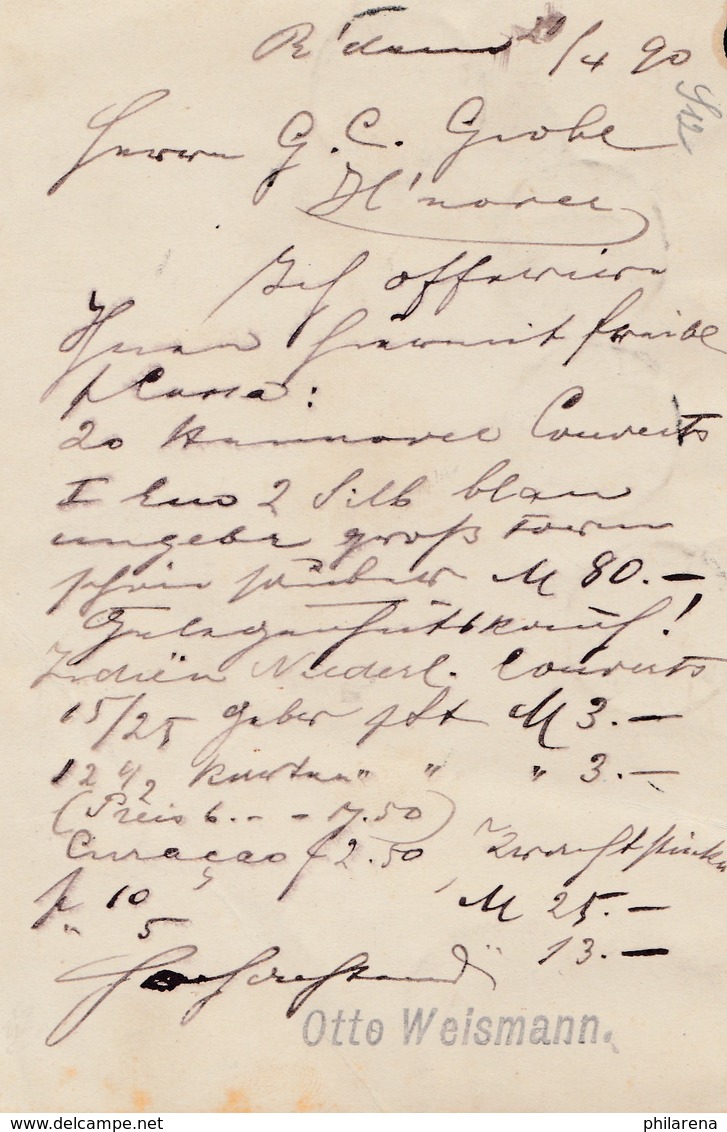 R'dam 20/4 90
Herrn G. C. Grobe
H'nover
Ich offeriere
Ihnen hiermit freibl
p Cassa:
20 Hannover Couverts
I 2 Silb blau
ungebr groß Form
schön sauber M 80.—
Gelegenheitskauf!
Indiën Niederl. Couverts
15/25 gebr pSt M 3.—
12 1/2 Karten " " " 3.—
(Preis 6.- - 7.50)
Curaçao f 2.50,
p 10 M 25.—
" 5 " 13.—
Hochachtend
Otto Weismann.
delcampe.net
philarena